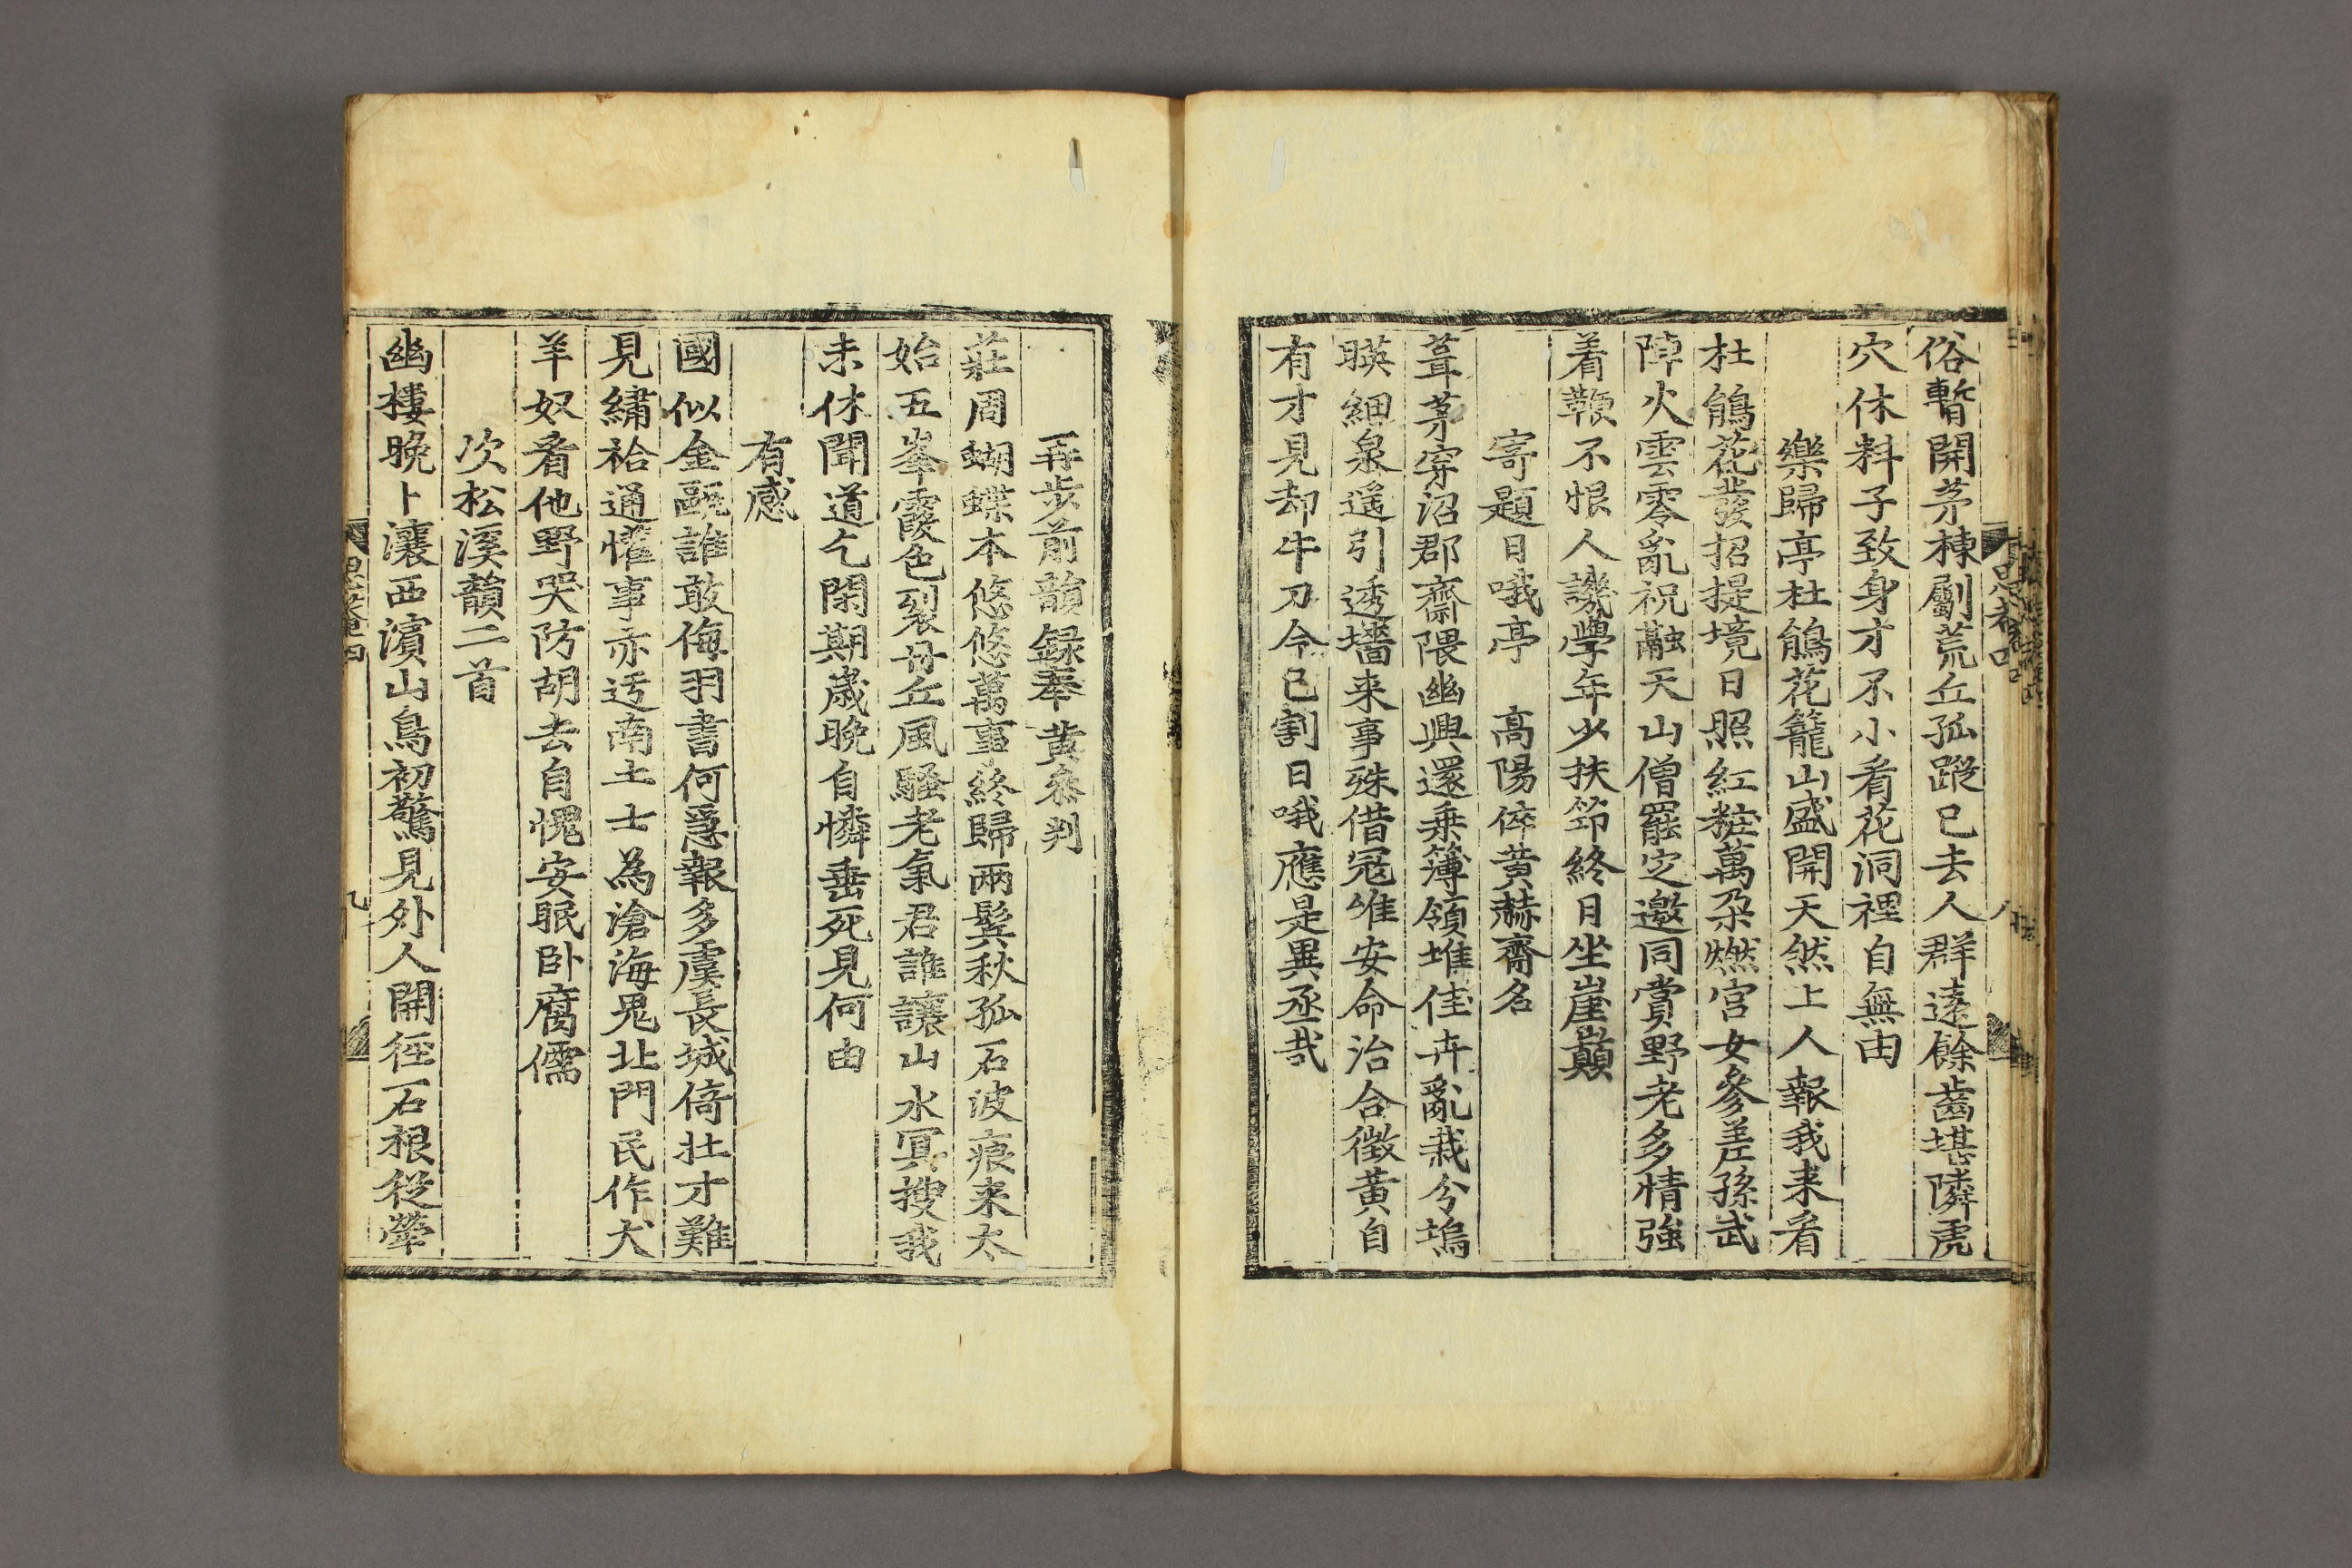 俗暫開茅棟劚荒丘孤蹤已去人群遠餘齒堪隣虎
穴休料子致身才不小看花洞裡自無由
樂歸亭杜鵑花籠山盛開天然上人報我来看
杜鵑花發招提境日照紅粧萬朶燃宮女參差孫武
陣火雲零亂祝融天山僧罷定邀同賞野老多情強
着鞭不恨人譏學年少扶筇終日坐崖巔
寄題日哦亭 高陽倅黄赫齋名
葺茅穿沼郡齋隈幽興還乗簿領堆佳卉亂栽分塢
暎細泉遥引透墻来事殊借冦唯安命治合徵黄自
有才見却牛刀今已割日哦應是異丞哉
再步前韻録奉黄叅判
莊周蝴蝶本悠悠萬事終歸兩鬂秋孤石波痕来太
始五峯霞色裂丹丘風騷老氣君誰讓山水冥搜我
未休聞道乞閑期歲晩自憐垂死見何由
有感
國似金甌誰敢侮羽書何急報多虞長城倚壯才難
見繡袷通懽事亦迃南土士為滄海鬼北門民作犬
羊奴看他野哭防胡去自愧安眠卧腐儒
次松溪韻二首
幽棲晩卜瀼西濱山鳥初驚見外人開徑石根從犖